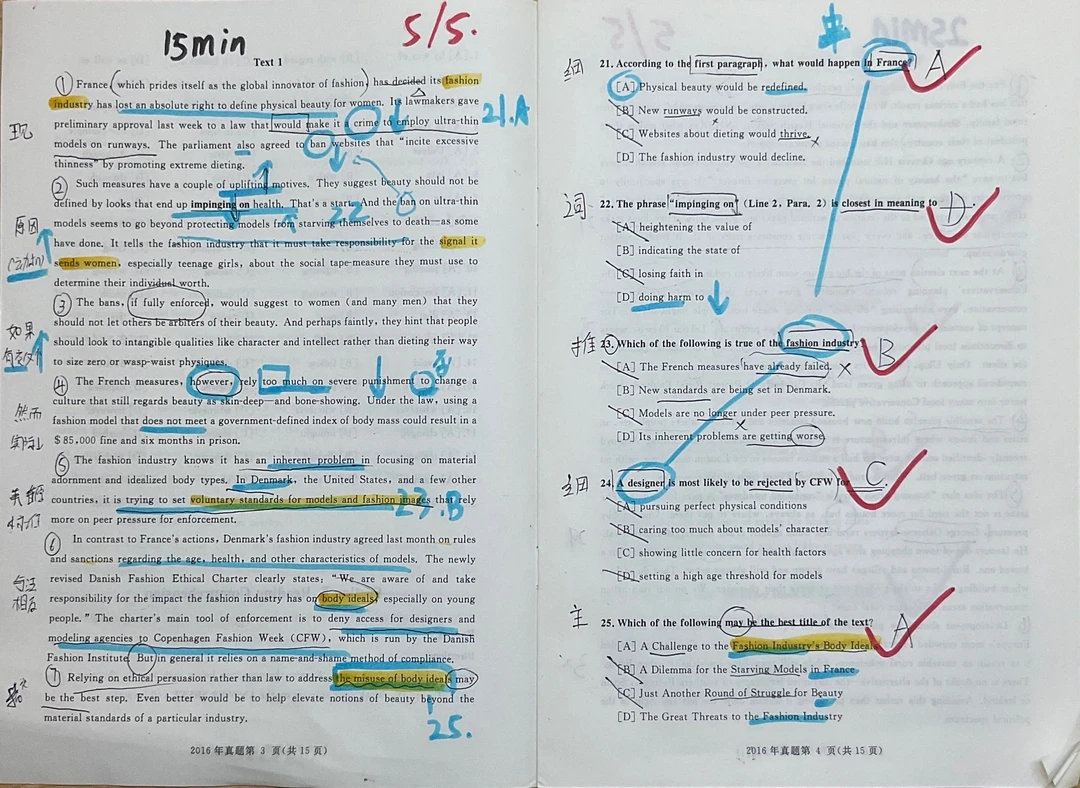 15min
5/5.
Text 1
① France (which prides itself as the global innovator of fashion) has decided its fashion
industry has lost an absolute right to define physical beauty for women. Its lawmakers gave
preliminary approval last week to a law that would make it a crime to employ ultra-thin
models on runways. The parliament also agreed to ban websites that "incite excessive
thinness" by promoting extreme dieting.
21.A
② Such measures have a couple of uplifting motives. They suggest beauty should not be
defined by looks that end up impinging on health. That's a start. And the ban on ultra-thin
models seems to go beyond protecting models from starving themselves to death—as some
have done. It tells the fashion industry that it must take responsibility for the signal it
sends women, especially teenage girls, about the social tape-measure they must use to
determine their individual worth.
22
原因
③ The bans, if fully enforced, would suggest to women (and many men) that they
should not let others be arbiters of their beauty. And perhaps faintly, they hint that people
should look to intangible qualities like character and intellect rather than dieting their way
to size zero or wasp-waist physiques.
如果
④ The French measures, however, rely too much on severe punishment to change a
culture that still regards beauty as skin-deep—and bone-showing. Under the law, using a
fashion model that does not meet a government-defined index of body mass could result in a
$85,000 fine and six months in prison.
然而
⑤ The fashion industry knows it has an inherent problem in focusing on material
adornment and idealized body types. In Denmark, the United States, and a few other
countries, it is trying to set voluntary standards for models and fashion images that rely
more on peer pressure for enforcement.
23.B
⑥ In contrast to France's actions, Denmark's fashion industry agreed last month on rules
and sanctions regarding the age, health, and other characteristics of models. The newly
revised Danish Fashion Ethical Charter clearly states: "We are aware of and take
responsibility for the impact the fashion industry has on body ideals, especially on young
people." The charter's main tool of enforcement is to deny access for designers and
modeling agencies to Copenhagen Fashion Week (CFW), which is run by the Danish
Fashion Institute. But in general it relies on a name-and-shame method of compliance.
相反
⑦ Relying on ethical persuasion rather than law to address the misuse of body ideals may
be the best step. Even better would be to help elevate notions of beauty beyond the
material standards of a particular industry.
25.
2016 年真题第 3 页(共 15 页)
细
21. According to the first paragraph, what would happen in France?
A
[A] Physical beauty would be redefined.
[B] New runways would be constructed.
[C] Websites about dieting would thrive.
[D] The fashion industry would decline.
词
22. The phrase "impinging on" (Line 2, Para. 2) is closest in meaning to
D
[A] heightening the value of
[B] indicating the state of
[C] losing faith in
[D] doing harm to
推
23. Which of the following is true of the fashion industry?
B
[A] The French measures have already failed.
[B] New standards are being set in Denmark.
[C] Models are no longer under peer pressure.
[D] Its inherent problems are getting worse.
细
24. A designer is most likely to be rejected by CFW for
C
[A] pursuing perfect physical conditions
[B] caring too much about models' character
[C] showing little concern for health factors
[D] setting a high age threshold for models
主
25. Which of the following may be the best title of the text?
A
[A] A Challenge to the Fashion Industry's Body Ideals
[B] A Dilemma for the Starving Models in France
[C] Just Another Round of Struggle for Beauty
[D] The Great Threats to the Fashion Industry
2016 年真题第 4 页(共 15 页)